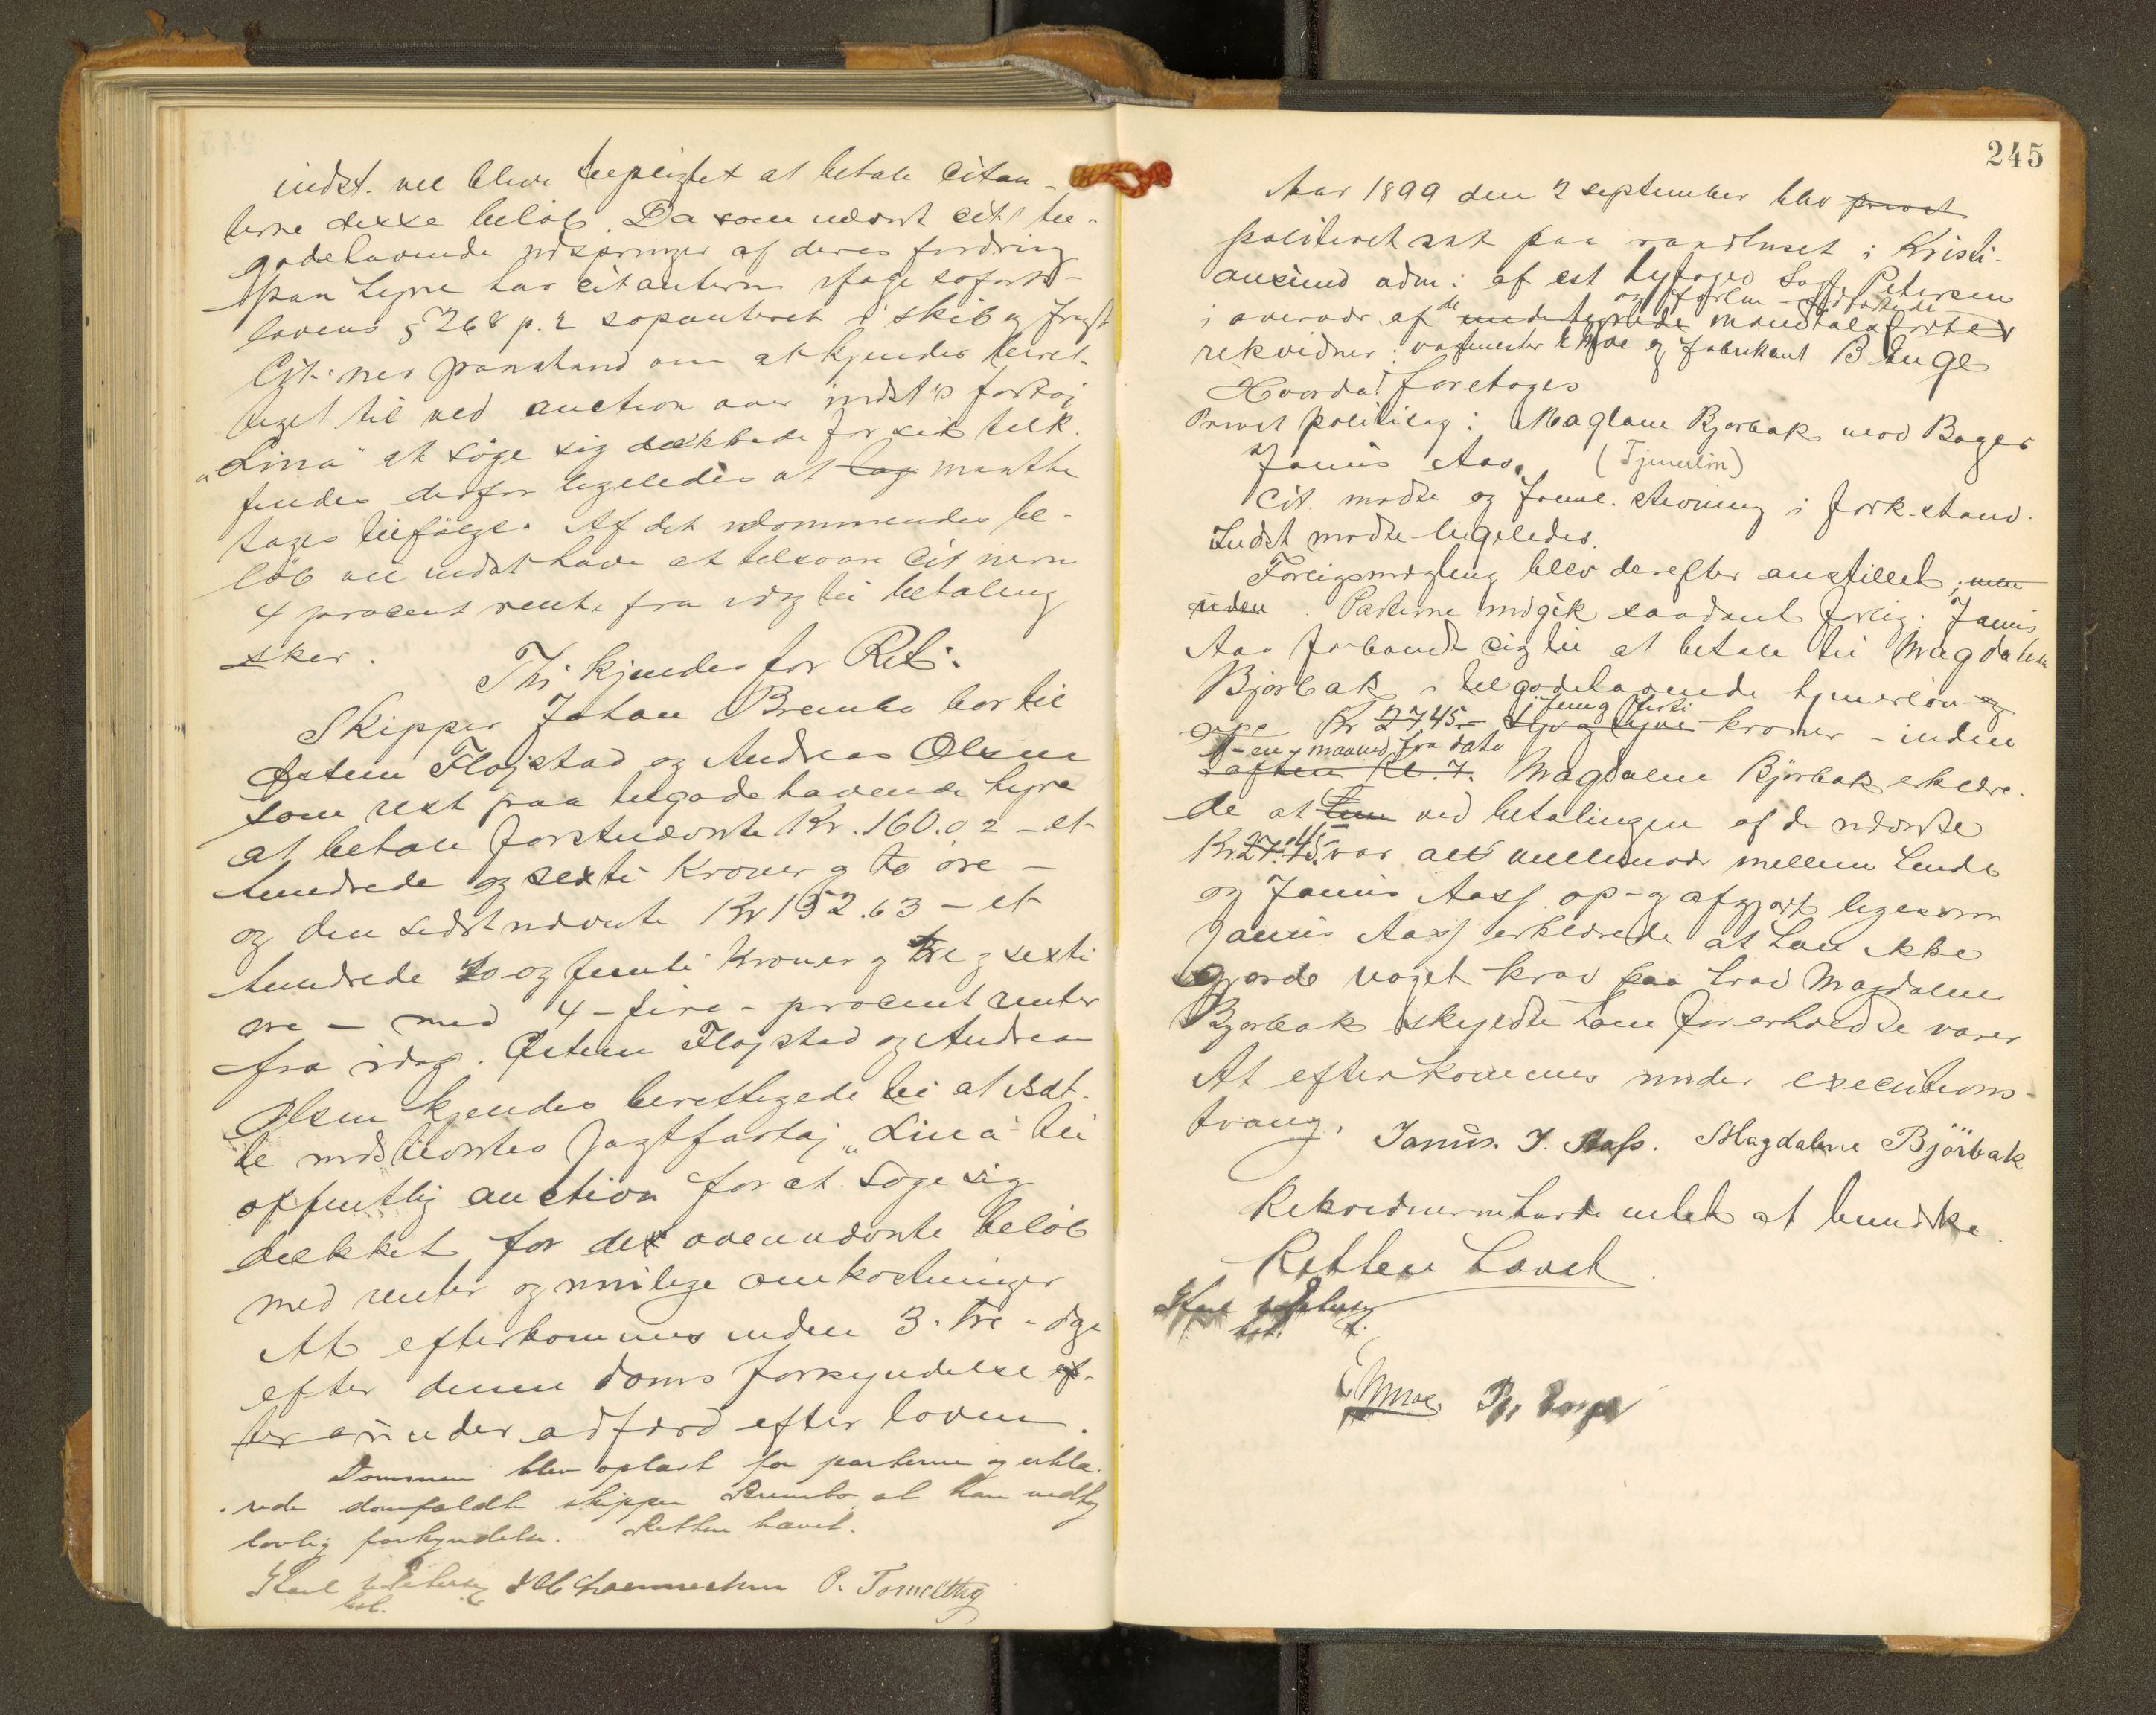 indst. vil blive bepligtet at betale citan-
terne disse beløb. Da som nævnt cits til-
godehavende udspringer af deres fordring
paa hyre har citanterne ifølge søfarts-
lovens § 268 p. 2 søpanteret i skib og fragt
Cit.nes paastand om at kjendes beret-
tiget til ved auction over indst's fartøj
"Lina" at søge sig dækkede for sit tilk.
findes derfor ligeledes at maatte
tages tilfølge. Af det idømmendes be-
løb vil indst have at tilsvare cit.nerne
4 procent rente fra idag til betaling
sker.
Thi kjendes for Ret:
Skipper Johan Brembo bør til
Østen Fløjstad og Andreas Olsen
som rest paa tilgodehavende hyre
at betale førstnævnte Kr. 160.02 - et
hundrede og sexti Kroner og to øre -
og den sidstnævnte Kr 152.63 - et
hundrede to og femti Kroner og tre og sexti
øre - med 4 - fire - procent renter
fra idag. Østen Fløjstad og Andreas
Olsen kjendes berettigede til at sæt-
te indstævntes Jagtfartøj "Lina" til
offentlig auction for at søge sig
dækket for det ovennævnte beløb
med renter og omkostninger
At efterkommes inden 3 - tre - dage
efter denne doms forkyndelse ef-
ter under adfærd efter loven.
Dommen blev oplæst for parterne og erklæ-
rede domfældte skipper Brembo at han vedtog
lovlig forkyndelse. Retten hævet.
P. Tomelthy
245
Aar 1899 den 2 september blev privat
politiret sat paa raadhuset i Kristi-
ansund adm: af cst byfoged Petersen
i overvær af de undertegnede mandtalsførte
rekvidner: og fabrikant B Enge
Hvorda foretoges
Privat politisag: Magdalene Bjørbak mod Bager
Janus Aas. (Tjenerløn)
Cit. mødte og freml. stevning i fork.stand.
Indst mødte ligeledes.
Forligsmægling blev derefter anstillet, men
uden. Parterne indgik saadant forlig: Janus
Aas forbandt sig til at betale til Magdalene
Bjørbak i tilgodehavende tjenerløn og
fem og firti
Kr 2745.- syv og tyve kroner - inden
en maaned fra dato
aften Kl. 7. Magdalene Bjørbak erklære-
de at hun ved betalingen af de nævnte
Kr. 27.45 var alt mellemvær mellem hende
og Janus Aass op- og afgjort ligesom
Janus Aass erklærede at han ikke
gjorde noget krav paa hvad Magdalene
Bjørbak skyldte ham for erholdte varer
At efterkommes under executions-
tvang. Janus. J. Aass. Magdalene Bjørbak
Rekvidnerne havde intet at bemærke.
Retten hævet.